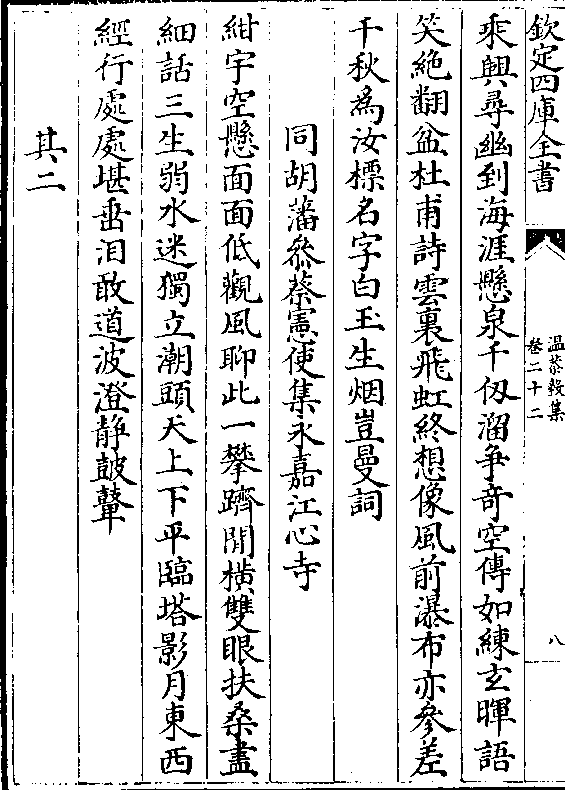 欽定四庫全書
溫恭毅集
卷二十二
八
乘興尋幽到海涯懸泉千仭溜爭竒空傳如練玄暉語
笑絶翻盆杜甫詩雲裏飛虹終想像風前瀑布亦參差
千秋為汝標名字白玉生烟豈曼詞
同胡藩叅蔡憲使集永嘉江心寺
紺宇空懸面面低觀風聊此一攀躋閒橫雙眼扶桑盡
細話三生弱水迷獨立潮頭天上下平臨塔影月東西
經行處處堪垂泪敢道波澄静鼓鼙
其二